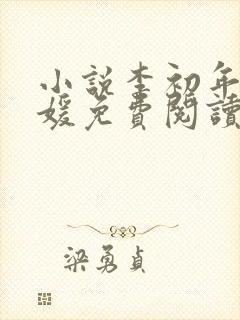 小說李初年
媛免費閱讀
梁勇貞